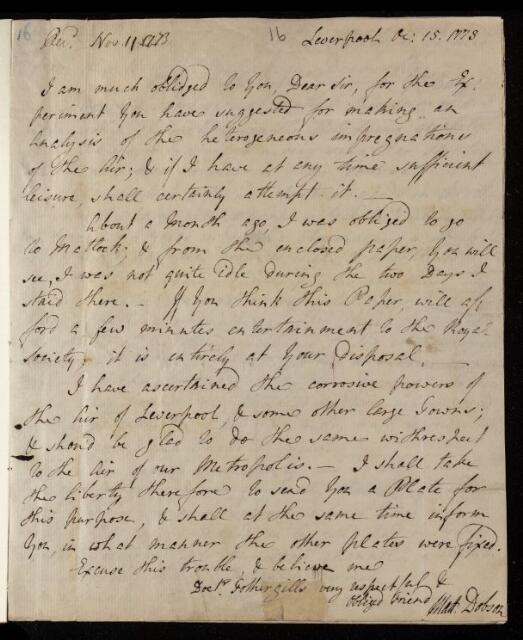 16
Rec.d Nov. 11 1773
16
Leverpool Oc: 15. 1773
I am much obliged to You, Dear Sir, for the Ex-
periment You have suggested for making an
Analysis of the heterogeneous impregnations
of the Air; & if I have at any time sufficient
leisure, shall certainly attempt it. —
About a Month ago, I was obliged to go
to Matlock; & from the enclosed paper, You will
see, I was not quite idle during the two Days I
staid there. — If You think this Paper, will af-
ford a few minutes entertainment to the Royal
Society, it is entirely at Your Disposal. —
I have ascertained the corrosive powers of
the Air of Leverpool, & some other large Towns;
& should be glad to do the same with respect
to the Air of our Metropolis. — I shall take
the liberty therefore to send You a Plate for
this purpose, & shall at the same time inform
You, in what manner the other plates were fixed.
Excuse this trouble, & believe me
Doct.r Fothergills very respectful &
obliged Friend
Matt. Dobson